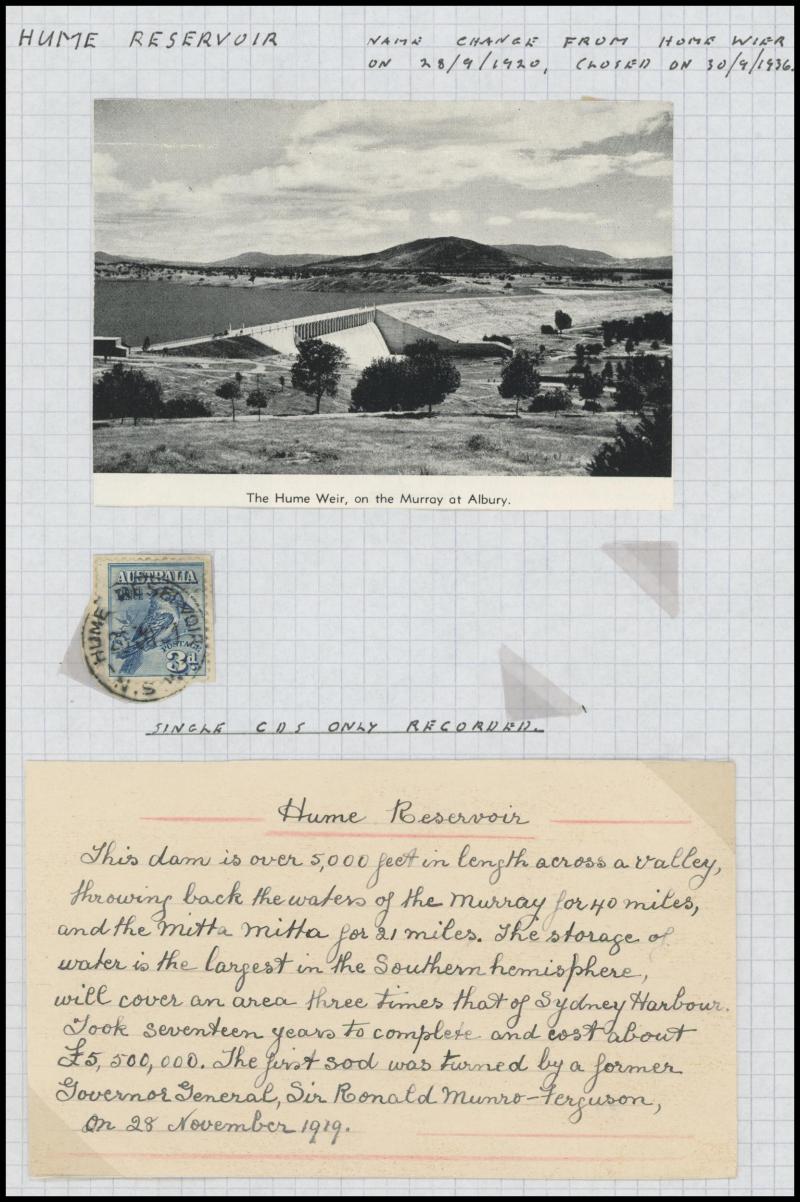 HUME RESERVOIR
NAME CHANGE FROM HOME WIER
ON 28/9/1920, CLOSED ON 30/9/1936.
The Hume Weir, on the Murray at Albury.
AUSTRALIA
HUME RESERVOIR
POSTAGE
3d
N.S.W
SINGLE CDS ONLY RECORDED.
Hume Reservoir
This dam is over 5,000 feet in length across a valley,
throwing back the waters of the Murray for 40 miles,
and the Mitta Mitta for 21 miles. The storage of
water is the largest in the Southern hemisphere,
will cover an area three times that of Sydney Harbour.
Took seventeen years to complete and cost about
£5,500,000. The first sod was turned by a former
Governor General, Sir Ronald Munro-Ferguson,
On 28 November 1919.